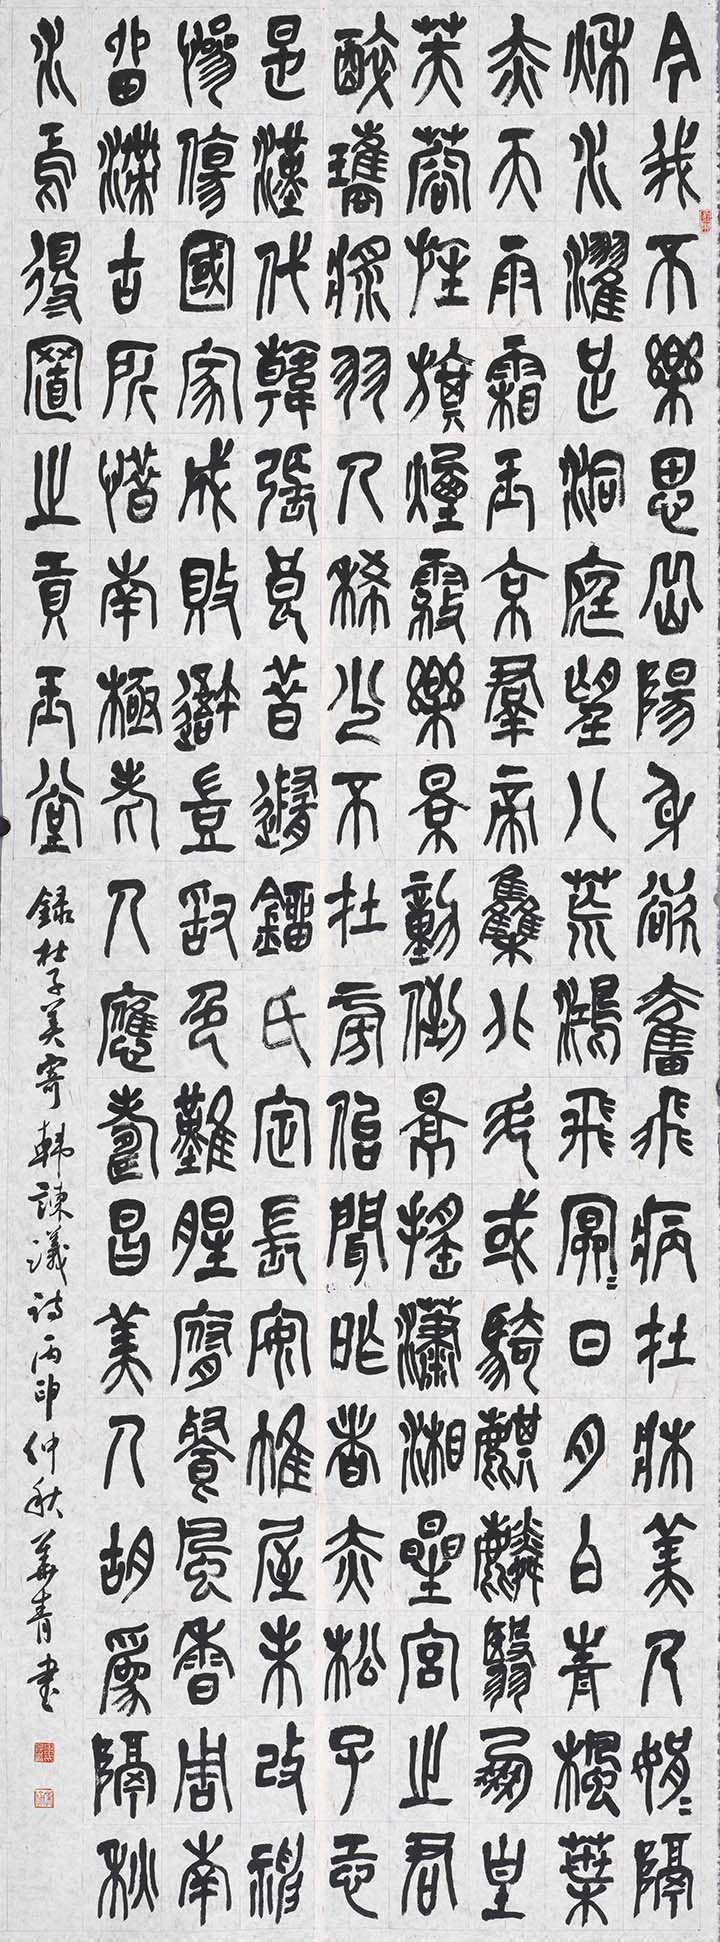 今我不樂思岳陽身欲奮飛病在牀美人娟〻隔
秋水濯足洞庭望八荒鴻飛冥〻日月白青楓葉
赤天雨霜玉京羣帝集北斗或騎麒麟翳鳳皇
芙蓉旌旗煙霧樂景動倒景搖瀟湘星宮之君
醉瓊漿羽人稀少不在旁侣聞昨者赤松子恐
是漢代韓張良昔隨劉氏定長安帷幄未改神
慘傷國家成敗吾豈敢色難腥腐餐風香周南
留滯古所惜南極老人應壽昌美人胡爲隔秋
水焉得置之貢玉堂
錄杜子美寄韩諫議詩丙申仲秋青書